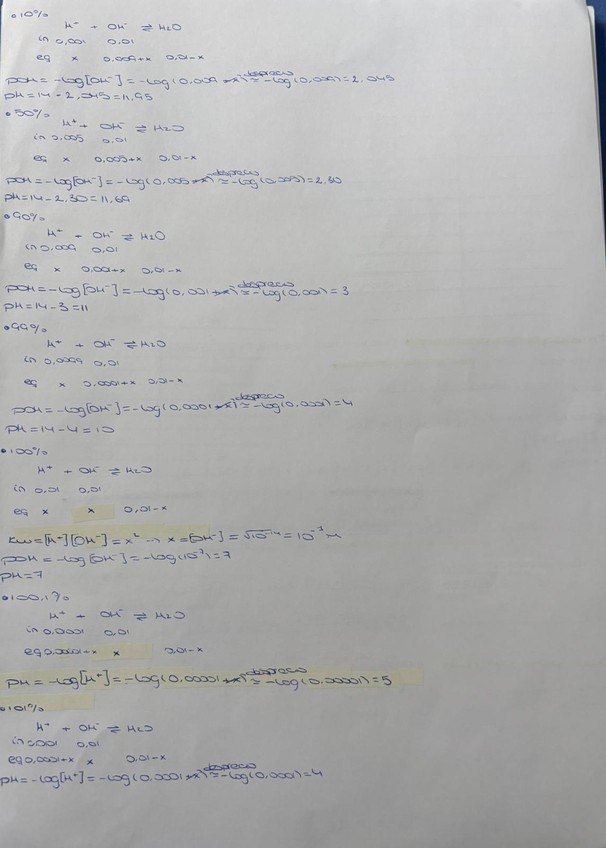 •10%
H⁺ + OH⁻ ⇌ H2O
in 0,001 0,01
eq x 0,009+x 0,01-x
pOH = -log[OH⁻] = -log(0,009 +x) desprecio ≈ -log(0,009) = 2,045
pH = 14 - 2,045 = 11,95
•50%
H⁺ + OH⁻ ⇌ H2O
in 0,005 0,01
eq x 0,005+x 0,01-x
pOH = -log[OH⁻] = -log(0,005 +x) desprecio ≈ -log(0,005) = 2,30
pH = 14 - 2,30 = 11,69
•90%
H⁺ + OH⁻ ⇌ H2O
in 0,009 0,01
eq x 0,001+x 0,01-x
pOH = -log[OH⁻] = -log(0,001 +x) desprecio ≈ -log(0,001) = 3
pH = 14 - 3 = 11
•99%
H⁺ + OH⁻ ⇌ H2O
in 0,0099 0,01
eq x 0,0001+x 0,01-x
pOH = -log[OH⁻] = -log(0,0001 +x) desprecio ≈ -log(0,0001) = 4
pH = 14 - 4 = 10
•100%
H⁺ + OH⁻ ⇌ H2O
in 0,01 0,01
eq x x 0,01-x
Kw = [H⁺][OH⁻] = x² → x = [OH⁻] = √10⁻¹⁴ = 10⁻⁷ M
pOH = -log[OH⁻] = -log(10⁻⁷) = 7
pH = 7
•100,1%
H⁺ + OH⁻ ⇌ H2O
in 0,0001 0,01
eq 0,00001+x x 0,01-x
pH = -log[H⁺] = -log(0,00001 +x) desprecio ≈ -log(0,00001) = 5
•101%
H⁺ + OH⁻ ⇌ H2O
in 0,001 0,01
eq 0,0001+x x 0,01-x
pH = -log[H⁺] = -log(0,0001 +x) desprecio ≈ -log(0,0001) = 4